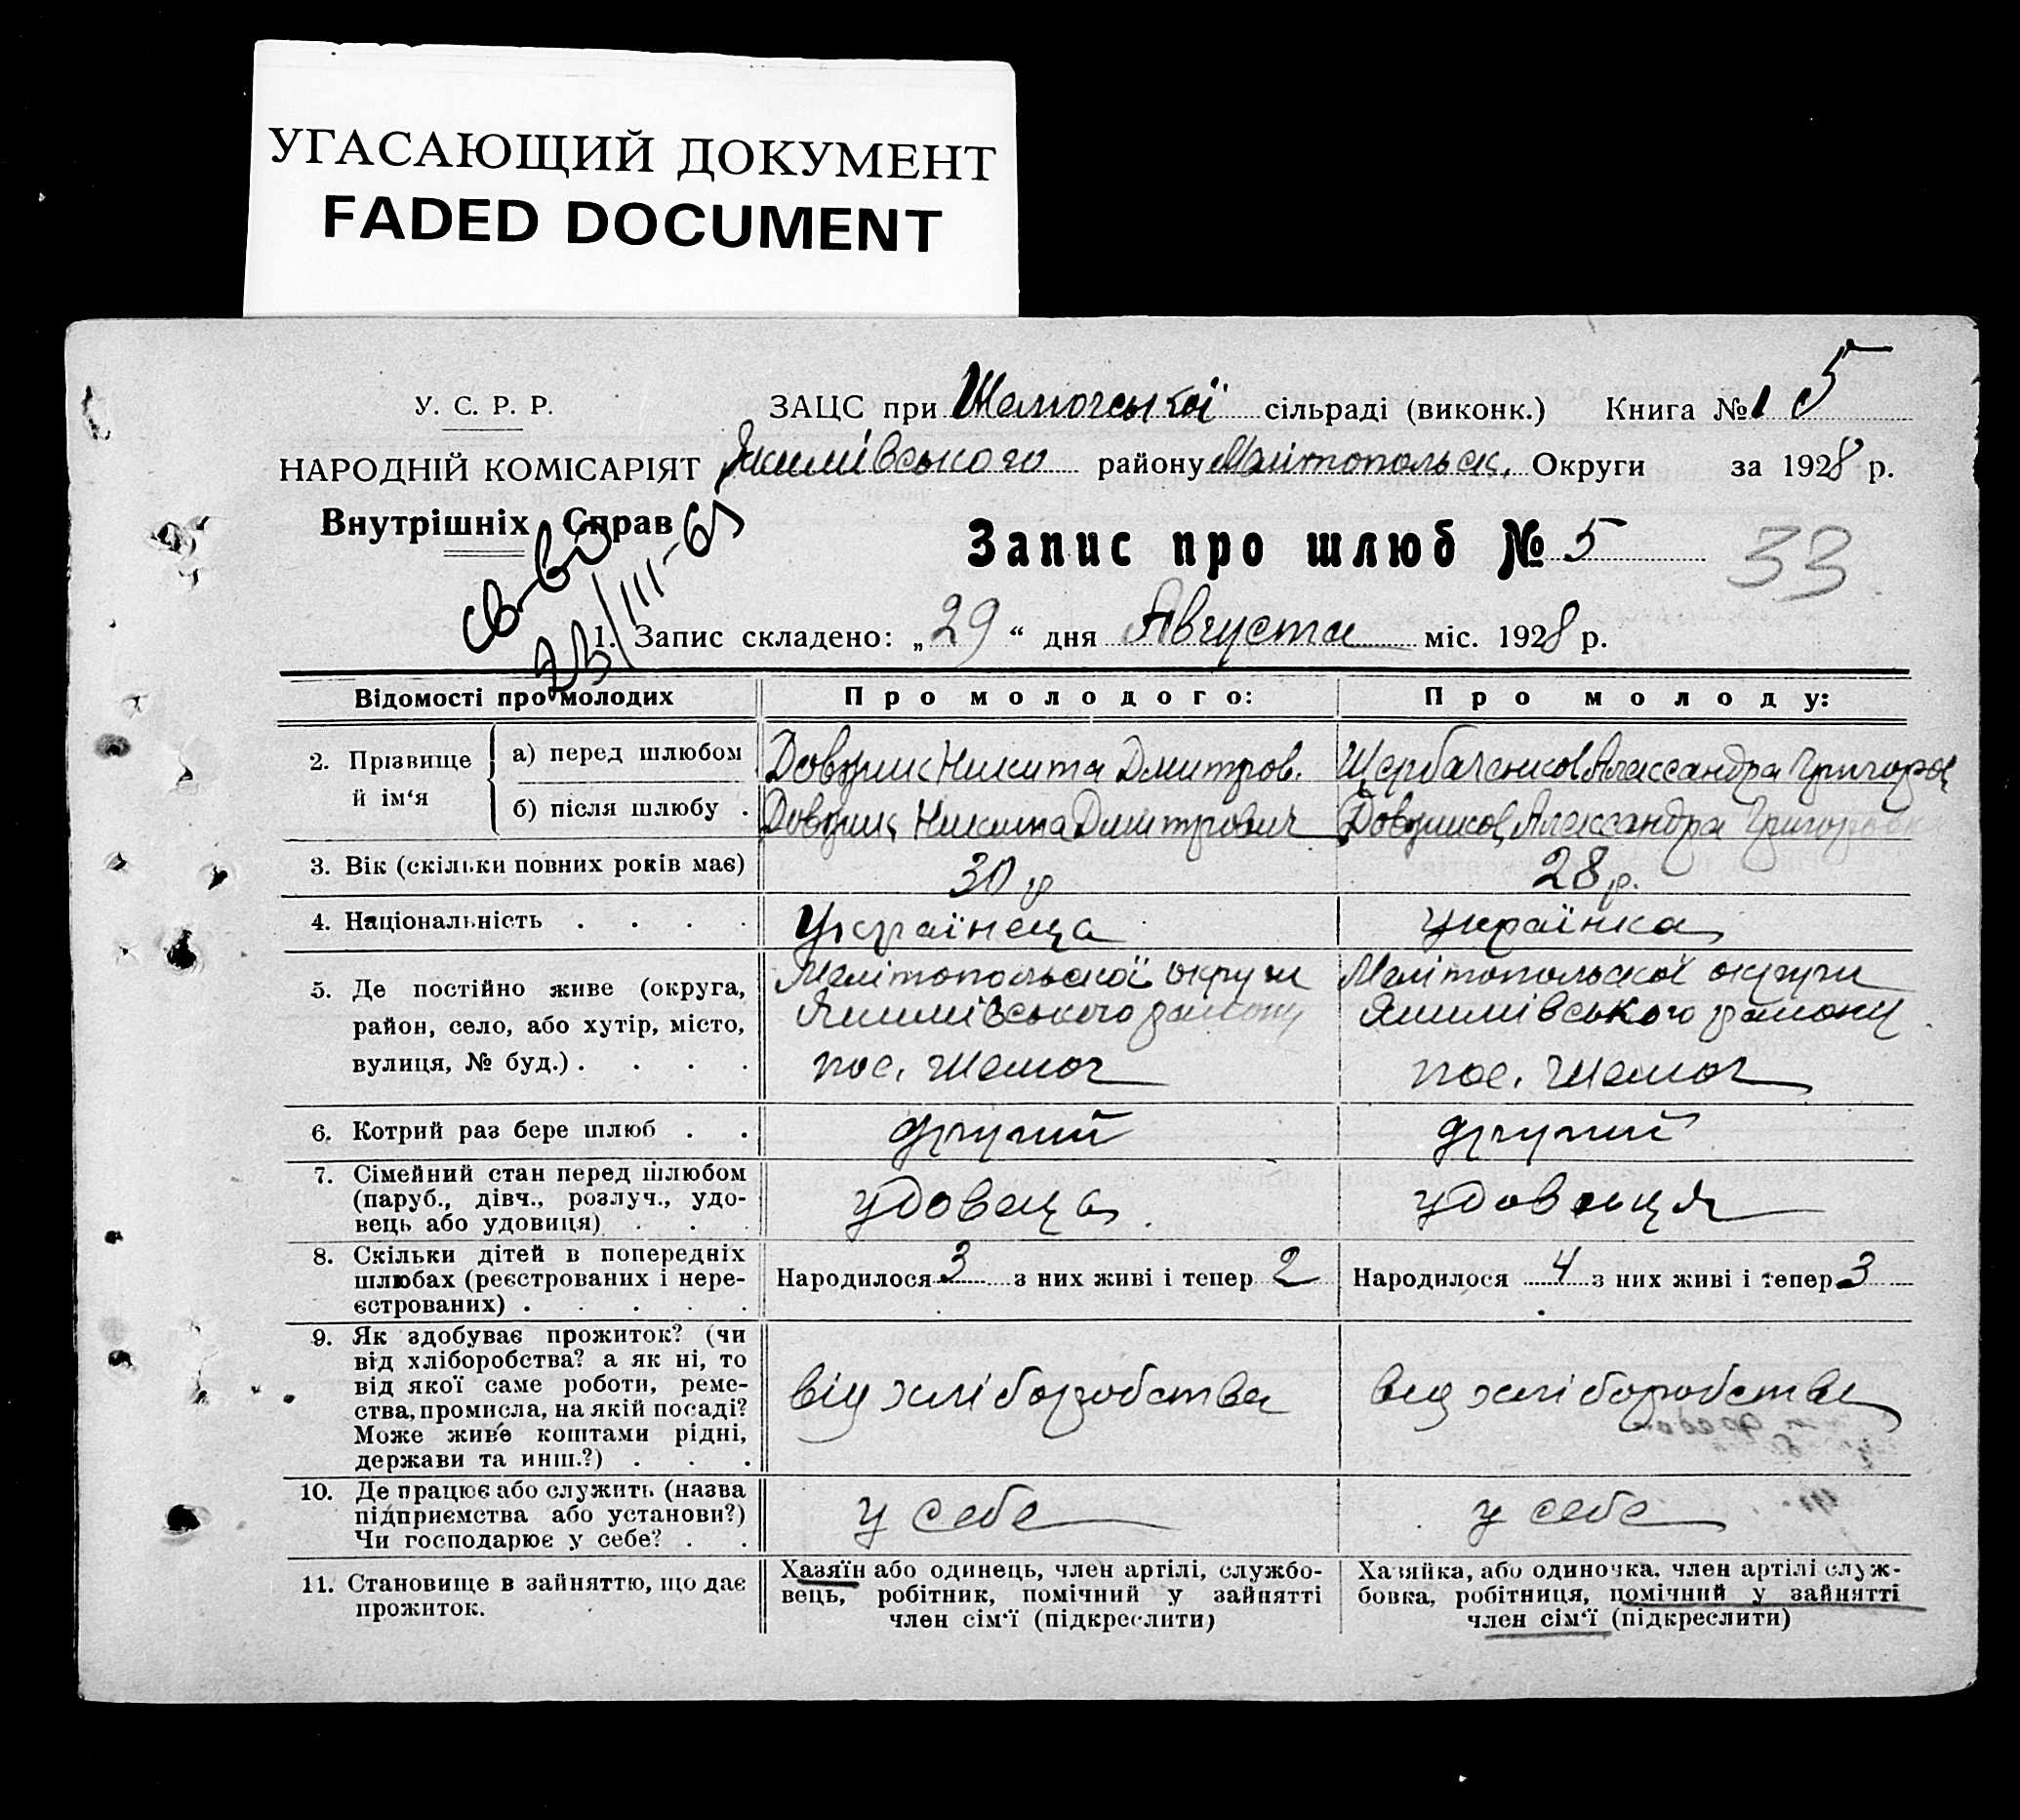 УГАСАЮЩИЙ ДОКУМЕНТ
FADED DOCUMENT
У. С. Р. Р.
НАРОДНІЙ КОМІСАРІЯТ
Внутрішніх Справ
ЗАЦС при Шемогської сільраді (виконк.) Книга № 1 5
Якимівського району Мелітопольск. Округи за 1928 р.
Запис про шлюб № 5
33
1. Запис складено: „29“ дня Августа міс. 1928 р.
Відомості про молодих Про молодого: Про молоду:
2. Прізвище й ім‘я
а) перед шлюбом Никита Дмитров. Александра
б) після шлюбу . Никита Дмитрович Александра
3. Вік (скільки повних років має) 30 р 28 р.
4. Національність . . . . Українець Українка
5. Де постійно живе (округа, район, село, або хутір, місто, вулиця, № буд.) . . . .
Мелітопольської округи
Якимівського району
пос. Шемог
Мелітопольскої округи
Якимівського району
пос. Шемог
6. Котрий раз бере шлюб . . другий другий
7. Сімейний стан перед шлюбом
(паруб., дівч., розлуч., удо-
вець або удовиця) . . . удовець удовиця
8. Скільки дітей в попередніх
шлюбах (реєстрованих і нере-
єстрованих) . . . . .
Народилося 3 з них живі і тепер 2 Народилося 4 з них живі і тепер 3
9. Як здобуває прожиток? (чи
від хліборобства? а як ні, то
від якої саме роботи, реме-
ства, промисла, на якій посаді?
Може живе коштами рідні,
держави та инш.?) . . .
від хліборобства від хліборобства
10. Де працює або служить (назва
підприємства або установи?)
Чи господарює у себе? . .
у себе у себе
11. Становище в зайняттю, що дає
прожиток.
Хазяїн або одинець, член артілі, службо-
вець, робітник, помічний у зайнятті
член сім‘ї (підкреслити)
Хазяйка, або одиночка, член артілі служ-
бовка, робітниця, помічний у зайнятті
член сім‘ї (підкреслити)